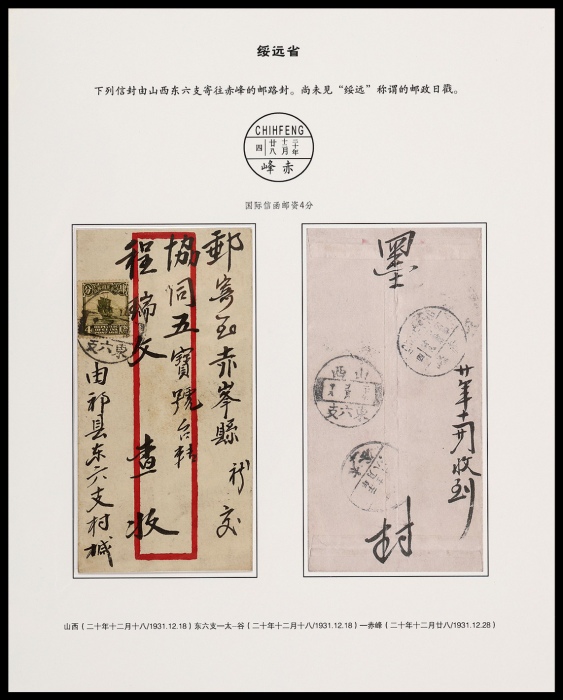 绥远省
下列信封由山西东六支寄往赤峰的邮路封。尚未见“绥远”称谓的邮政日戳。
CHIHFENG
四 廿八 十二月 二十年
峰赤
国际信函邮资4分
郵寄至赤峯縣 交
協同五寶號台轉
程瑞文 查收
4
支六東
由祁县东六支村槭
墨
西山
支六東
廿年十月廿收到
封
山西(二十年十二月十八/1931.12.18)东六支—太—谷(二十年十二月十八/1931.12.18)—赤峰(二十年十二月廿八/1931.12.28)